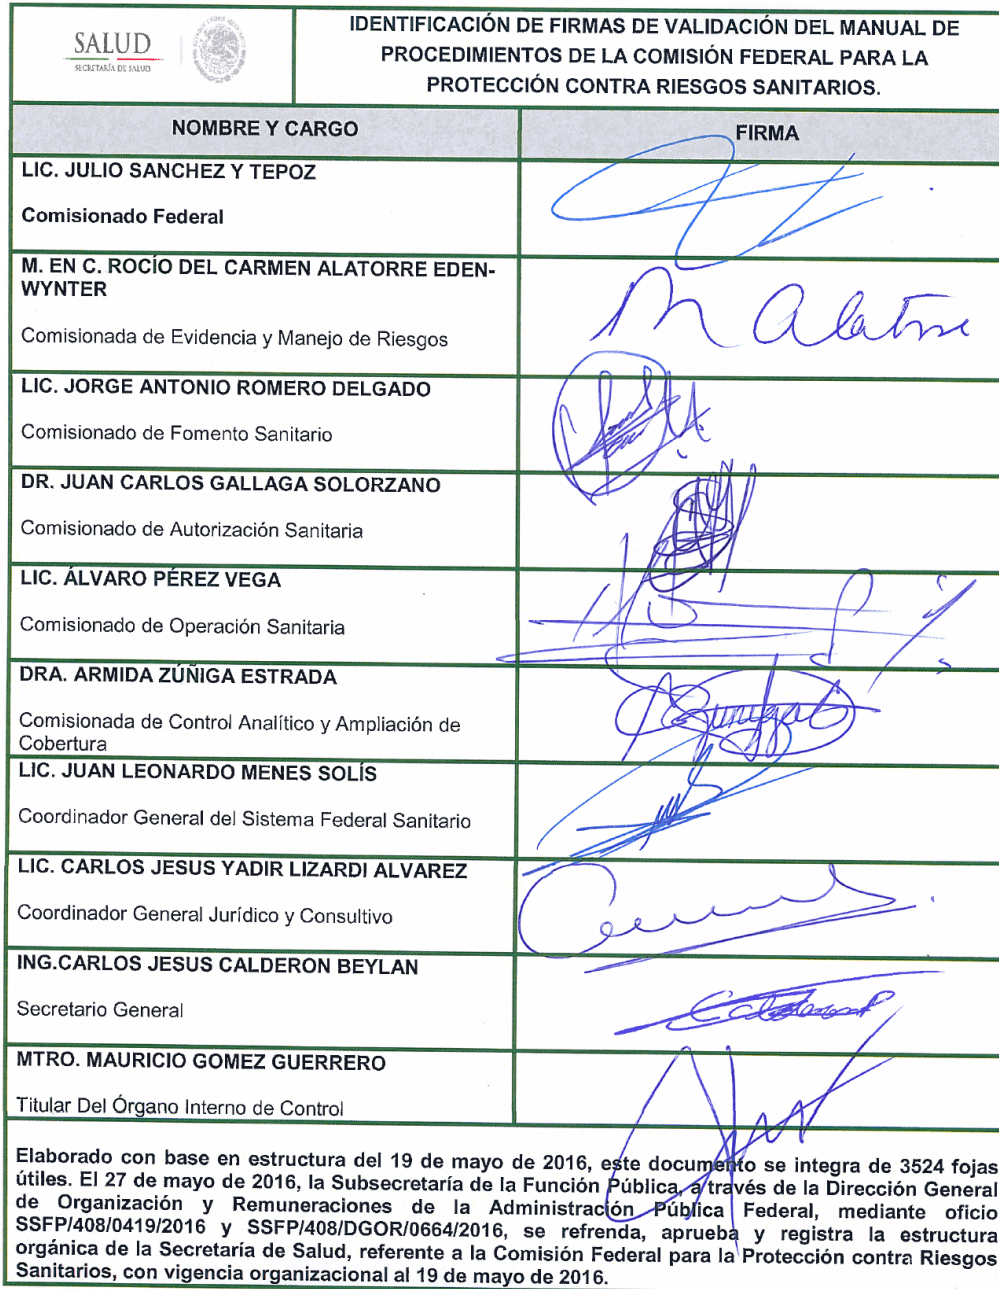 SALUD
SECRETARÍA DE SALUD
IDENTIFICACIÓN DE FIRMAS DE VALIDACIÓN DEL MANUAL DE
PROCEDIMIENTOS DE LA COMISIÓN FEDERAL PARA LA
PROTECCIÓN CONTRA RIESGOS SANITARIOS.
NOMBRE Y CARGO
FIRMA
LIC. JULIO SANCHEZ Y TEPOZ
Comisionado Federal
M. EN C. ROCÍO DEL CARMEN ALATORRE EDEN-
WYNTER
Comisionada de Evidencia y Manejo de Riesgos
LIC. JORGE ANTONIO ROMERO DELGADO
Comisionado de Fomento Sanitario
DR. JUAN CARLOS GALLAGA SOLORZANO
Comisionado de Autorización Sanitaria
LIC. ÁLVARO PÉREZ VEGA
Comisionado de Operación Sanitaria
DRA. ARMIDA ZÚÑIGA ESTRADA
Comisionada de Control Analítico y Ampliación de
Cobertura
LIC. JUAN LEONARDO MENES SOLÍS
Coordinador General del Sistema Federal Sanitario
LIC. CARLOS JESUS YADIR LIZARDI ALVAREZ
Coordinador General Jurídico y Consultivo
ING.CARLOS JESUS CALDERON BEYLAN
Secretario General
MTRO. MAURICIO GOMEZ GUERRERO
Titular Del Órgano Interno de Control
Elaborado con base en estructura del 19 de mayo de 2016, este documento se integra de 3524 fojas
útiles. El 27 de mayo de 2016, la Subsecretaría de la Función Pública, a través de la Dirección General
de Organización y Remuneraciones de la Administración Pública Federal, mediante oficio
SSFP/408/0419/2016 y SSFP/408/DGOR/0664/2016, se refrenda, aprueba y registra la estructura
orgánica de la Secretaría de Salud, referente a la Comisión Federal para la Protección contra Riesgos
Sanitarios, con vigencia organizacional al 19 de mayo de 2016.